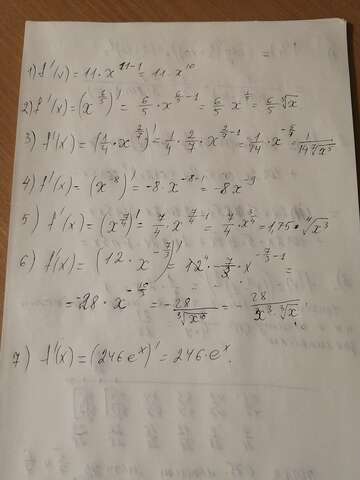 1) f'(x) = 11 · x¹¹⁻¹ = 11 · x¹⁰
2) f'(x) = (x^(6/5))' = 6/5 · x^(6/5 - 1) = 6/5 x^(1/5) = 6/5 ⁵√x
3) f'(x) = (1/4 · x^(2/7))' = 1/4 · 2/7 · x^(2/7 - 1) = 1/14 · x^(-5/7) = 1/(14 ⁷√x⁵)
4) f'(x) = (x⁻⁸)' = -8 · x⁻⁸⁻¹ = -8x⁻⁹
5) f'(x) = (x^(7/4))' = 7/4 · x^(7/4 - 1) = 7/4 · x^(3/4) = 1,75 · ⁴√x³
6) f'(x) = (12 · x^(-7/3))' = 12⁴ · -7/3 · x^(-7/3 - 1) =
= -28 · x^(-10/3) = -28/(³√x¹⁰) = - 28/(x³ · ³√x)
7) f'(x) = (246eˣ)' = 246 · eˣ.